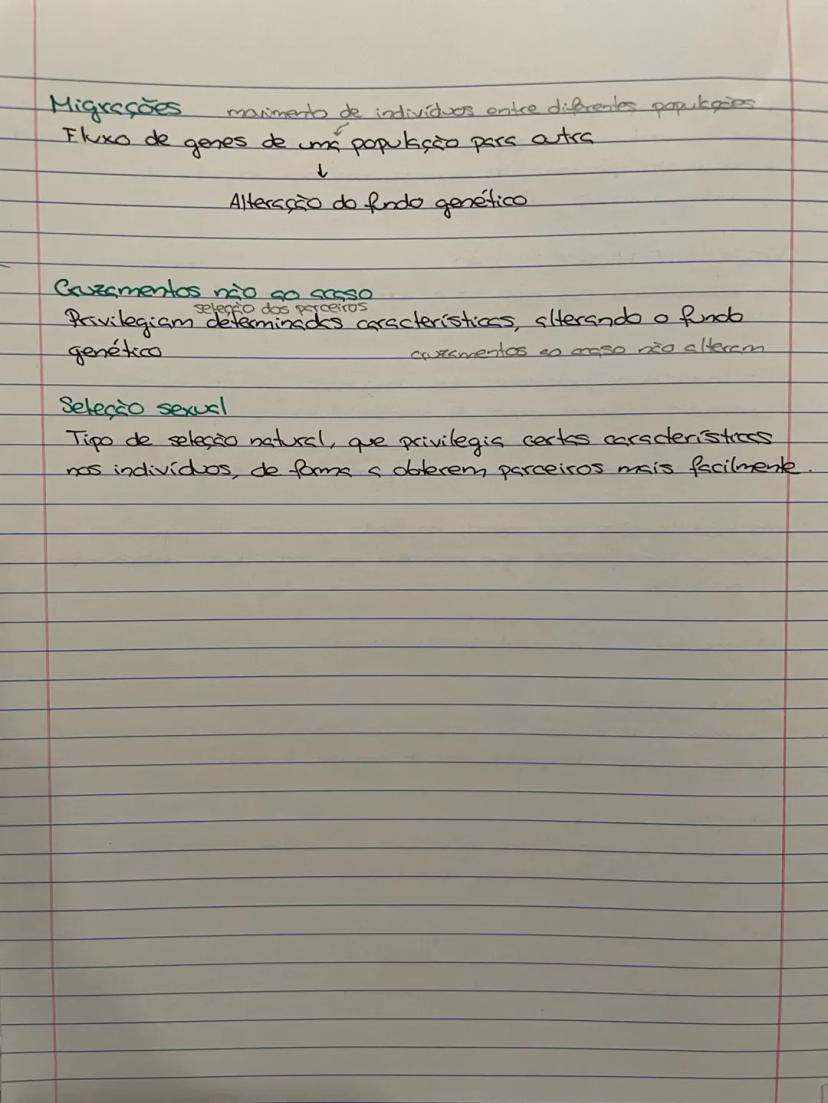 Migrações movimento de indivíduos entre diferentes populações
Fluxo de genes de uma população para outra
↓
Alteração do fundo genético
Cruzamentos não ao acaso
seleção dos parceiros
Privilegiam determinadas características, alterando o fundo
genético cruzamentos ao acaso não alteram
Seleção sexual
Tipo de seleção natural, que privilegia certas características
nos indivíduos, de forma a obterem parceiros mais facilmente.